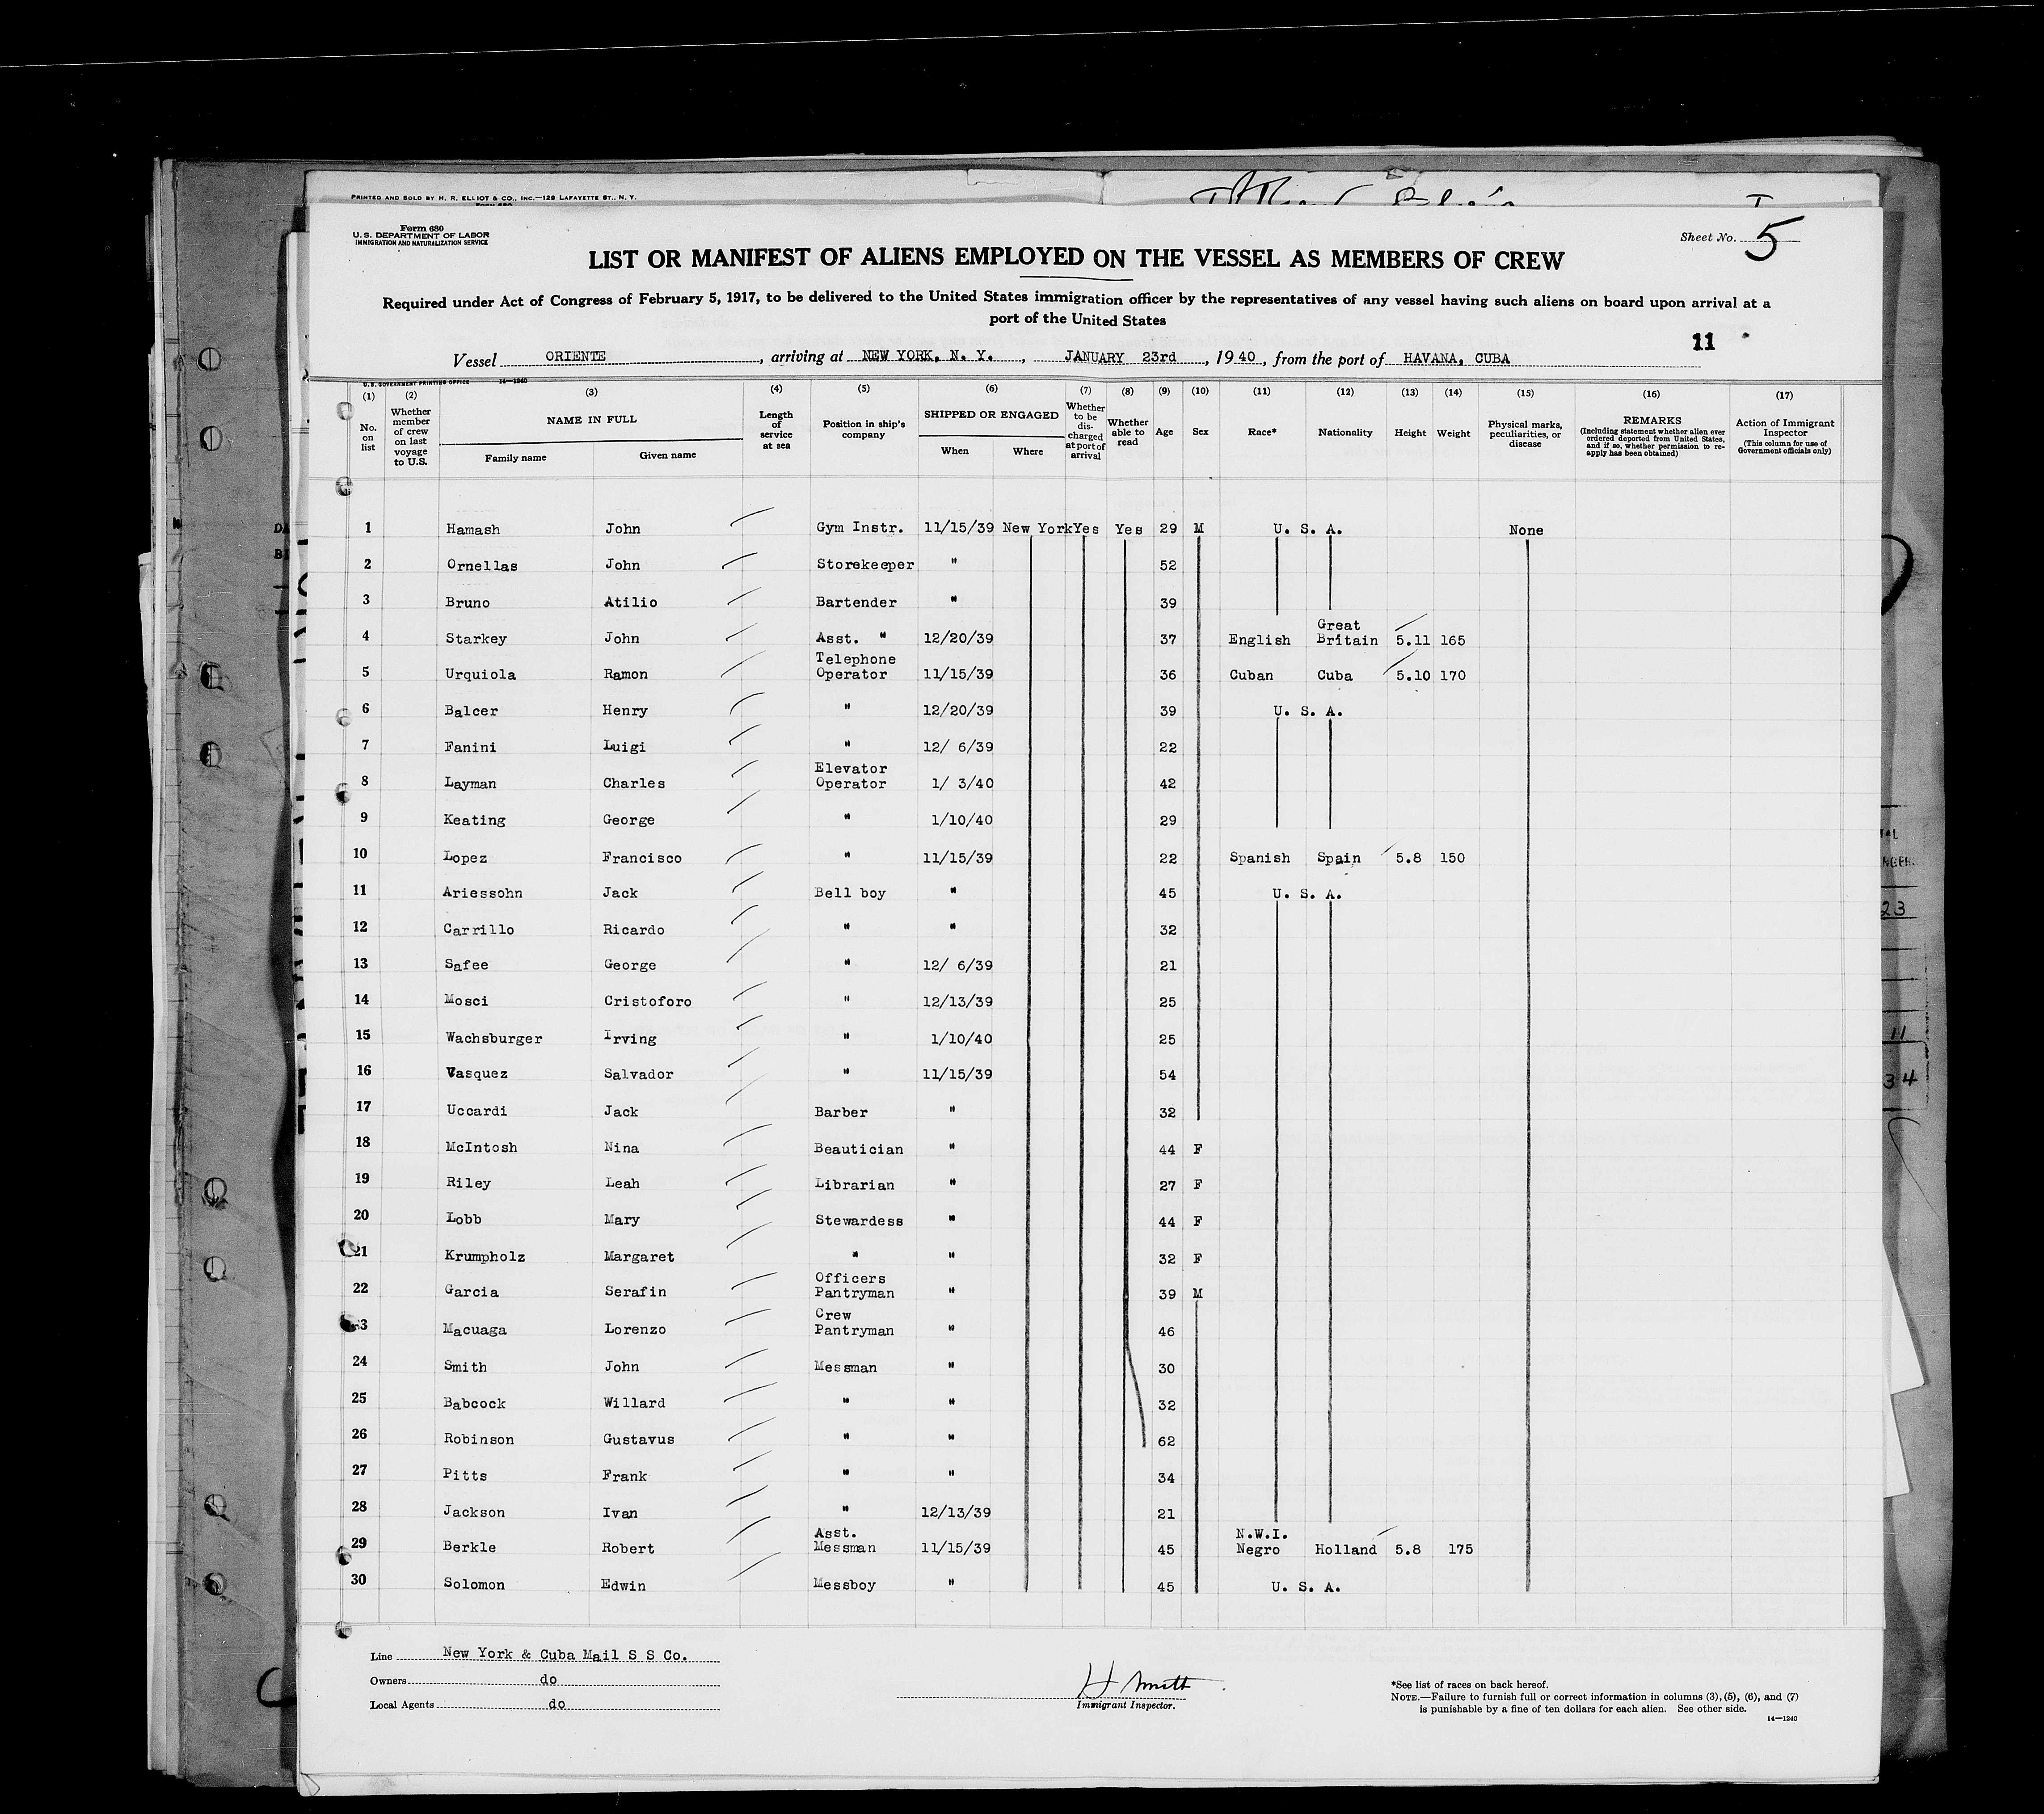 PRINTED AND SOLD BY H. R. ELLIOT & CO., INC.—129 LAFAYETTE ST., N. Y.
Form 680
U. S. DEPARTMENT OF LABOR
IMMIGRATION AND NATURALIZATION SERVICE
Sheet No. 5
LIST OR MANIFEST OF ALIENS EMPLOYED ON THE VESSEL AS MEMBERS OF CREW
Required under Act of Congress of February 5, 1917, to be delivered to the United States immigration officer by the representatives of any vessel having such aliens on board upon arrival at a
port of the United States
11
Vessel ORIENTE, arriving at NEW YORK, N. Y., JANUARY 23rd, 1940, from the port of HAVANA, CUBA
U. S. GOVERNMENT PRINTING OFFICE 14—1240
(1) No. on list
(2) Whether member of crew on last voyage to U.S.
(3) NAME IN FULL
Family name Given name
(4) Length of service at sea
(5) Position in ship's company
(6) SHIPPED OR ENGAGED
When Where
(7) Whether to be discharged at port of arrival
(8) Whether able to read
(9) Age
(10) Sex
(11) Race*
(12) Nationality
(13) Height
(14) Weight
(15) Physical marks, peculiarities, or disease
(16) REMARKS
(Including statement whether alien ever ordered deported from United States, and if so, whether permission to re-apply has been obtained)
(17) Action of Immigrant Inspector
(This column for use of Government officials only)
1 Hamash John Gym Instr. 11/15/39 New York Yes Yes 29 M U. S. A. None
2 Ornellas John Storekeeper " 52
3 Bruno Atilio Bartender " 39
4 Starkey John Asst. " 12/20/39 37 English Great Britain 5.11 165
5 Urquiola Ramon Telephone Operator 11/15/39 36 Cuban Cuba 5.10 170
6 Balcer Henry " 12/20/39 39 U. S. A.
7 Fanini Luigi " 12/ 6/39 22
8 Layman Charles Elevator Operator 1/ 3/40 42
9 Keating George " 1/10/40 29
10 Lopez Francisco " 11/15/39 22 Spanish Spain 5.8 150
11 Ariessohn Jack Bell boy " 45 U. S. A.
12 Carrillo Ricardo " " 32
13 Safee George " 12/ 6/39 21
14 Mosci Cristoforo " 12/13/39 25
15 Wachsburger Irving " 1/10/40 25
16 Vasquez Salvador " 11/15/39 54
17 Uccardi Jack Barber " 32
18 McIntosh Nina Beautician " 44 F
19 Riley Leah Librarian " 27 F
20 Lobb Mary Stewardess " 44 F
21 Krumpholz Margaret " " 32 F
22 Garcia Serafin Officers Pantryman " 39 M
23 Macuaga Lorenzo Crew Pantryman " 46
24 Smith John Messman " 30
25 Babcock Willard " " 32
26 Robinson Gustavus " " 62
27 Pitts Frank " " 34
28 Jackson Ivan " 12/13/39 21
29 Berkle Robert Asst. Messman 11/15/39 45 N.W.I. Negro Holland 5.8 175
30 Solomon Edwin Messboy " 45 U. S. A.
Line New York & Cuba Mail S S Co.
Owners do
Local Agents do
H Smith
Immigrant Inspector.
*See list of races on back hereof.
NOTE.—Failure to furnish full or correct information in columns (3), (5), (6), and (7)
is punishable by a fine of ten dollars for each alien. See other side.
14—1240